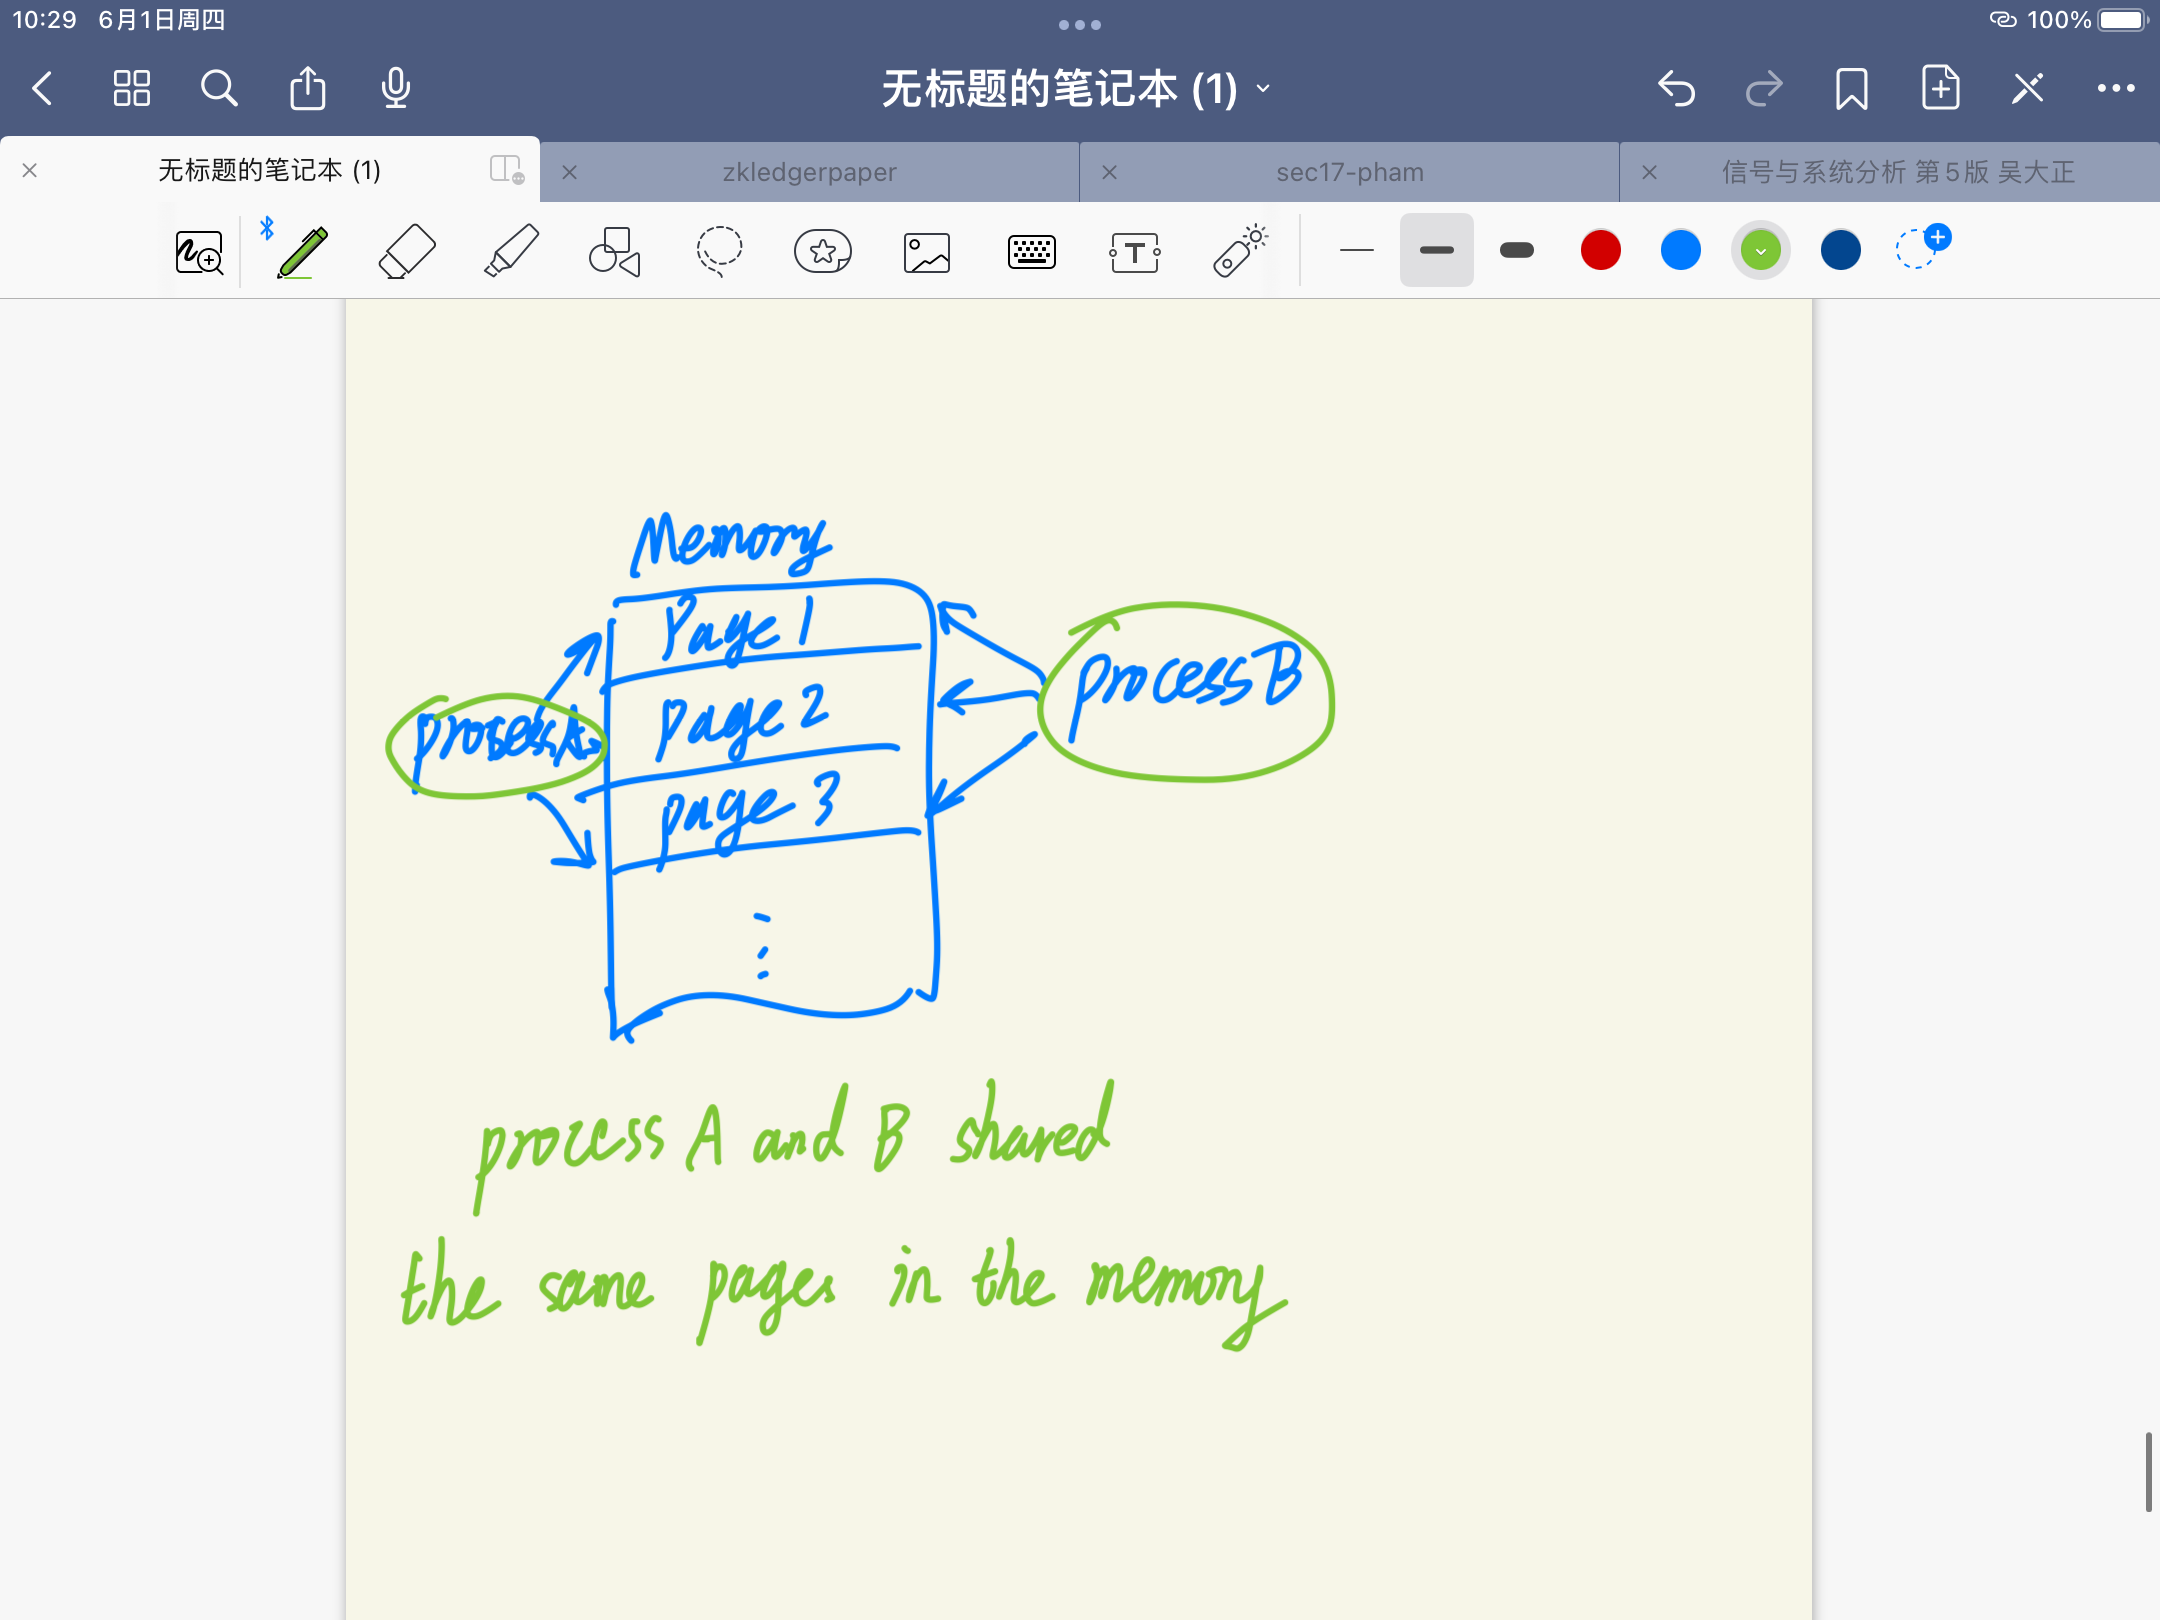 10:29 6月1日周四
100%
无标题的笔记本 (1)
无标题的笔记本 (1)
zkledgerpaper
sec17-pham
信号与系统分析 第5版 吴大正
Memory
Page 1
page 2
page 3
process A
process B
process A and B shared
the same pages in the memory